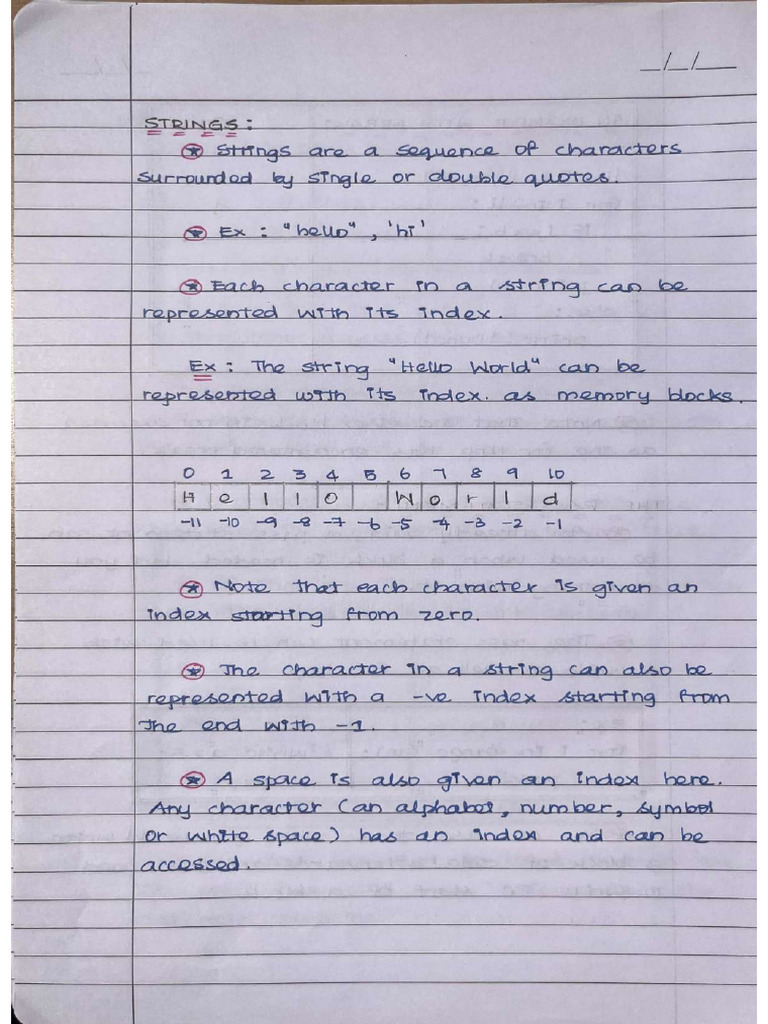 _/_/__
STRINGS:
Strings are a sequence of characters
surrounded by single or double quotes.
Ex : "hello", 'hi'
Each character in a string can be
represented with its index.
Ex: The string "Hello World" can be
represented with its index. as memory blocks.
0 1 2 3 4 5 6 7 8 9 10
H e l l o W o r l d
-11 -10 -9 -8 -7 -6 -5 -4 -3 -2 -1
Note that each character is given an
index starting from zero.
The character in a string can also be
represented with a -ve index starting from
the end with -1.
A space is also given an index here.
Any character (an alphabet, number, symbol
or white space) has an index and can be
accessed.